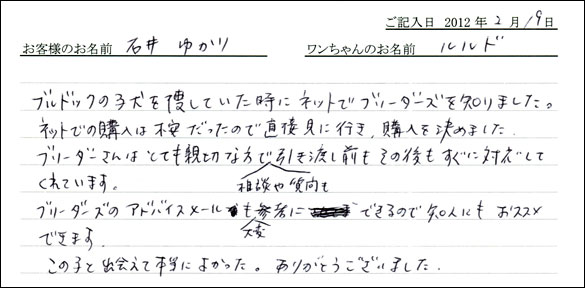 ご記入日 2012年2月19日
お客様のお名前 石井 ゆかり ワンちゃんのお名前 ルルド
ブルドックの子犬を捜していた時にネットでブリーダーズを知りました。
ネットでの購入は不安だったので直接見に行き、購入を決めました.
ブリーダーさんはとても親切な方で引き渡し前もその後もすぐに対応して
くれています。
相談や質問も
ブリーダーズのアドバイスメールも参考にできるので知人にもおススメ
大変
できます.
この子と出会えて本当によかった。ありがとうございました.